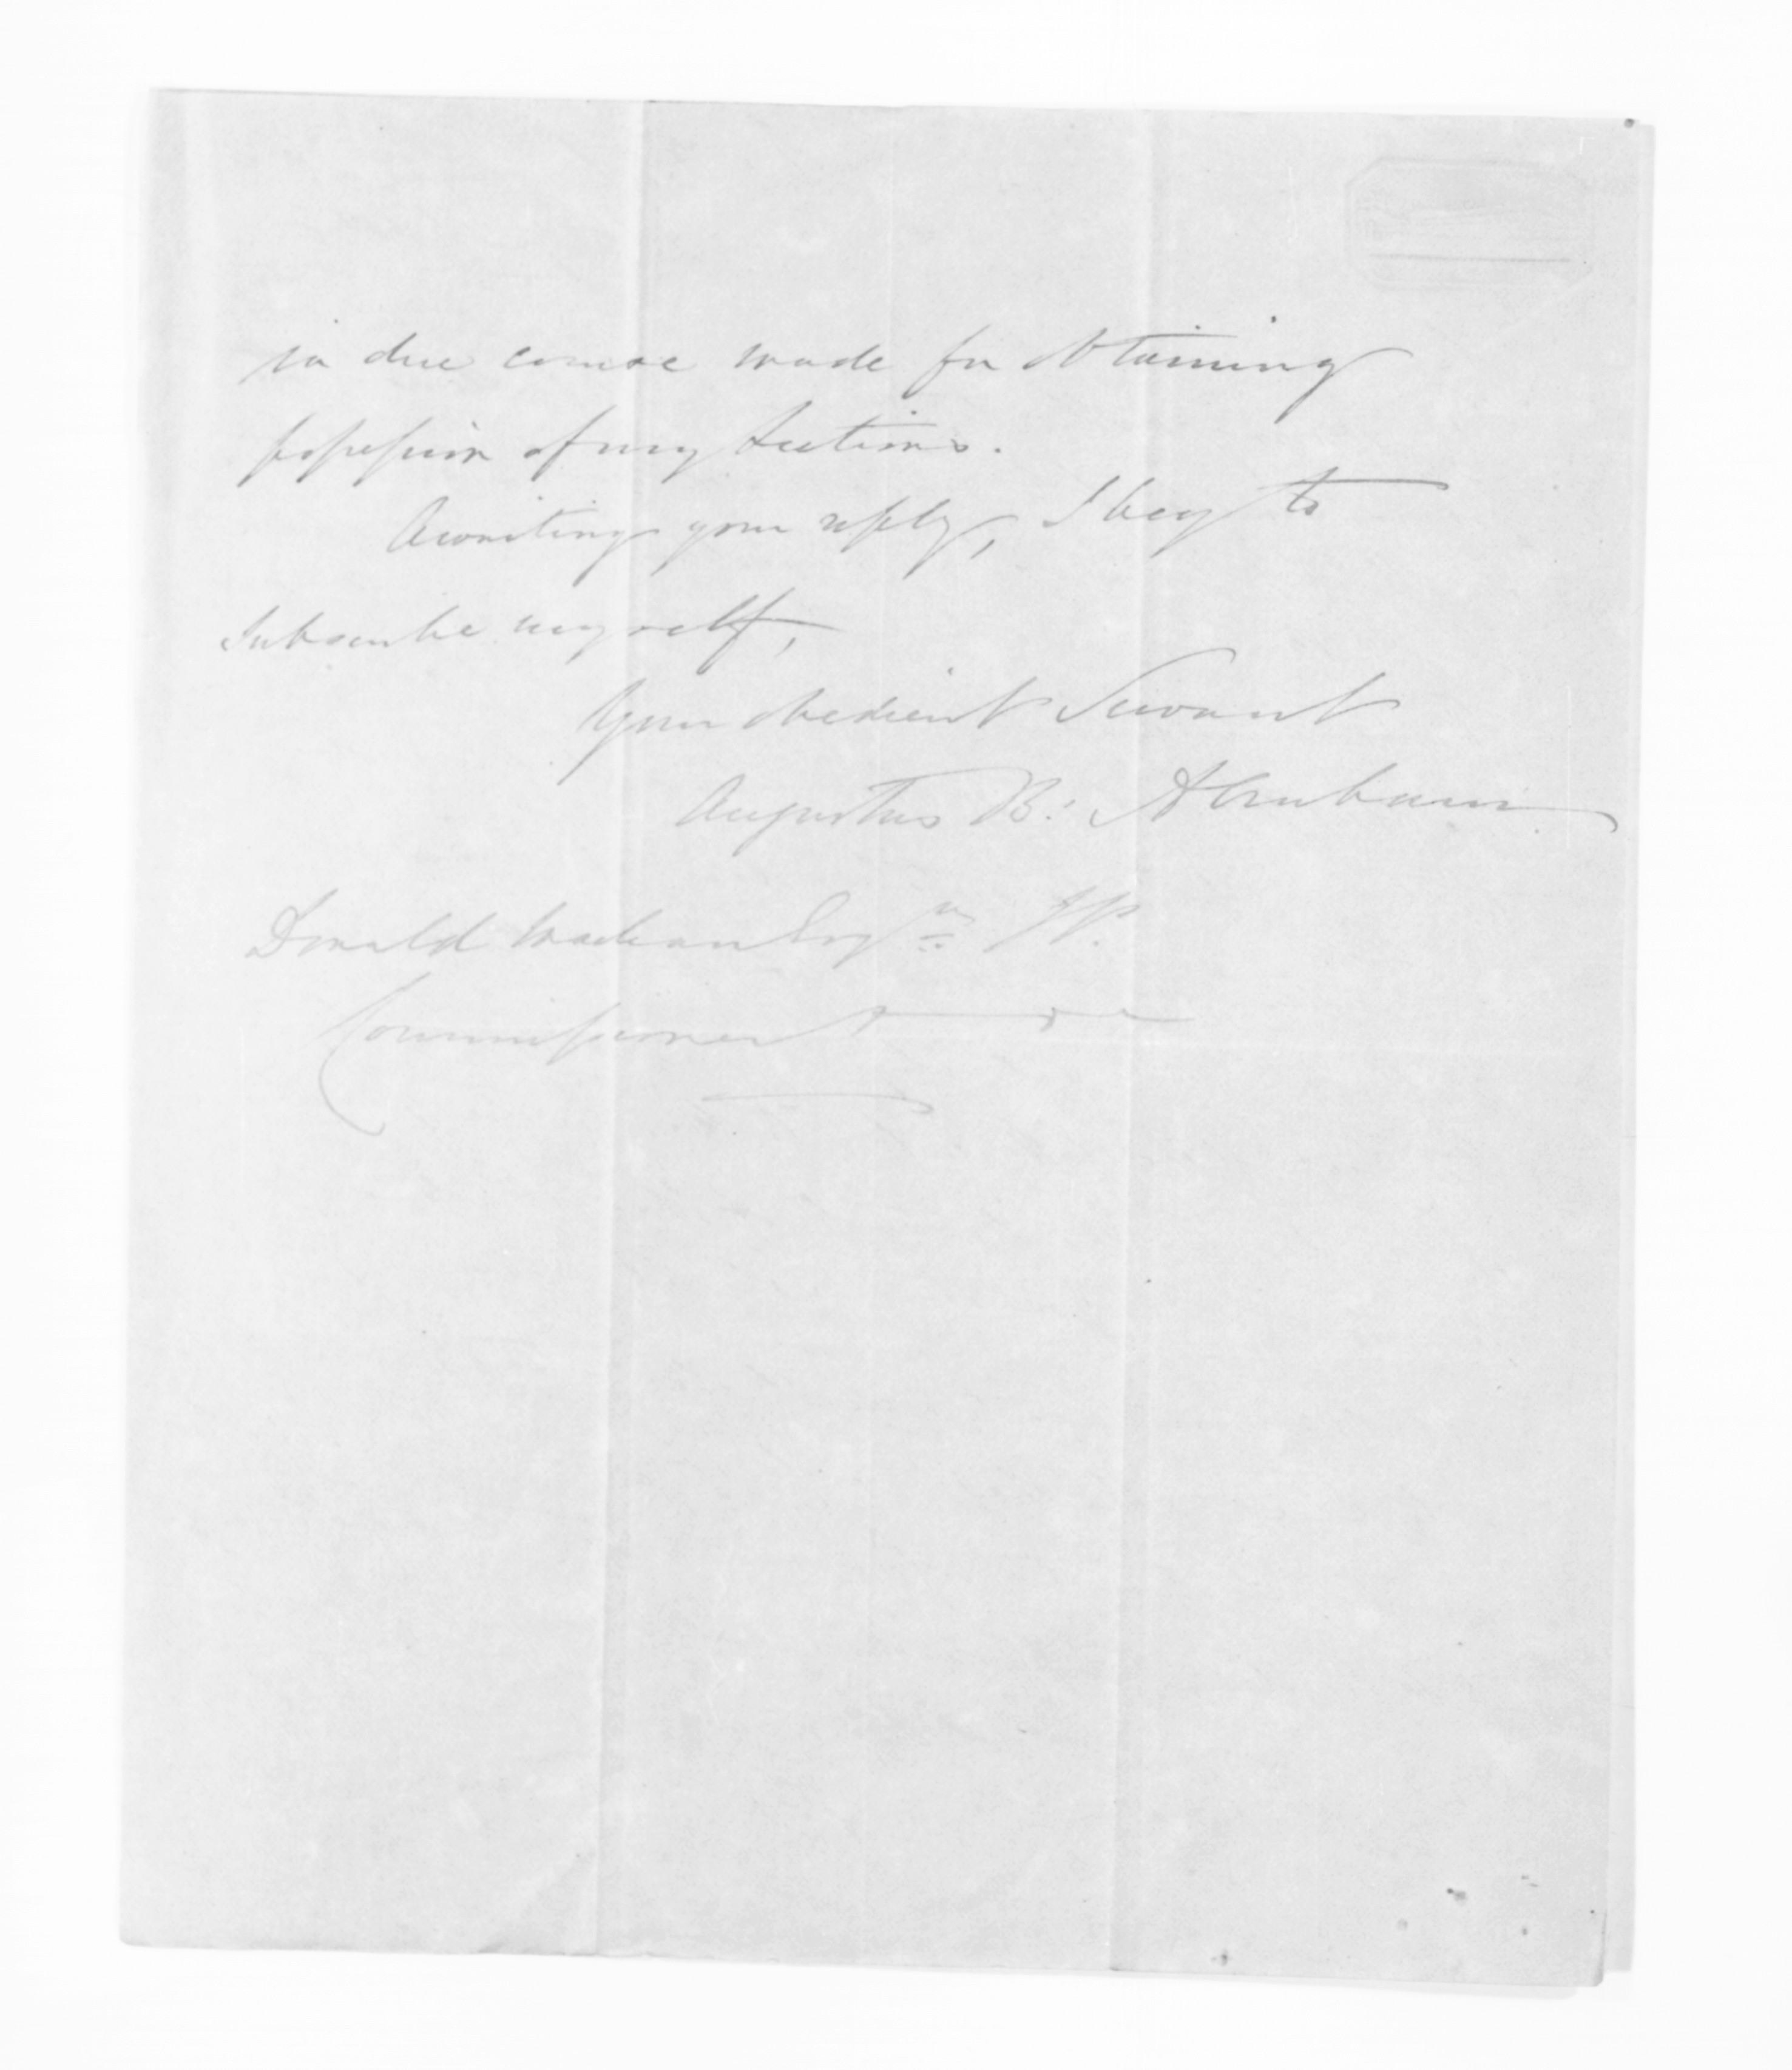 in due course made for obtaining
possession of my Sections.
Awaiting your reply, I beg to
subscribe myself,
Your obedient Servant
Augustus B: Abraham
Donald McLean Esqre JP.
Commissioner